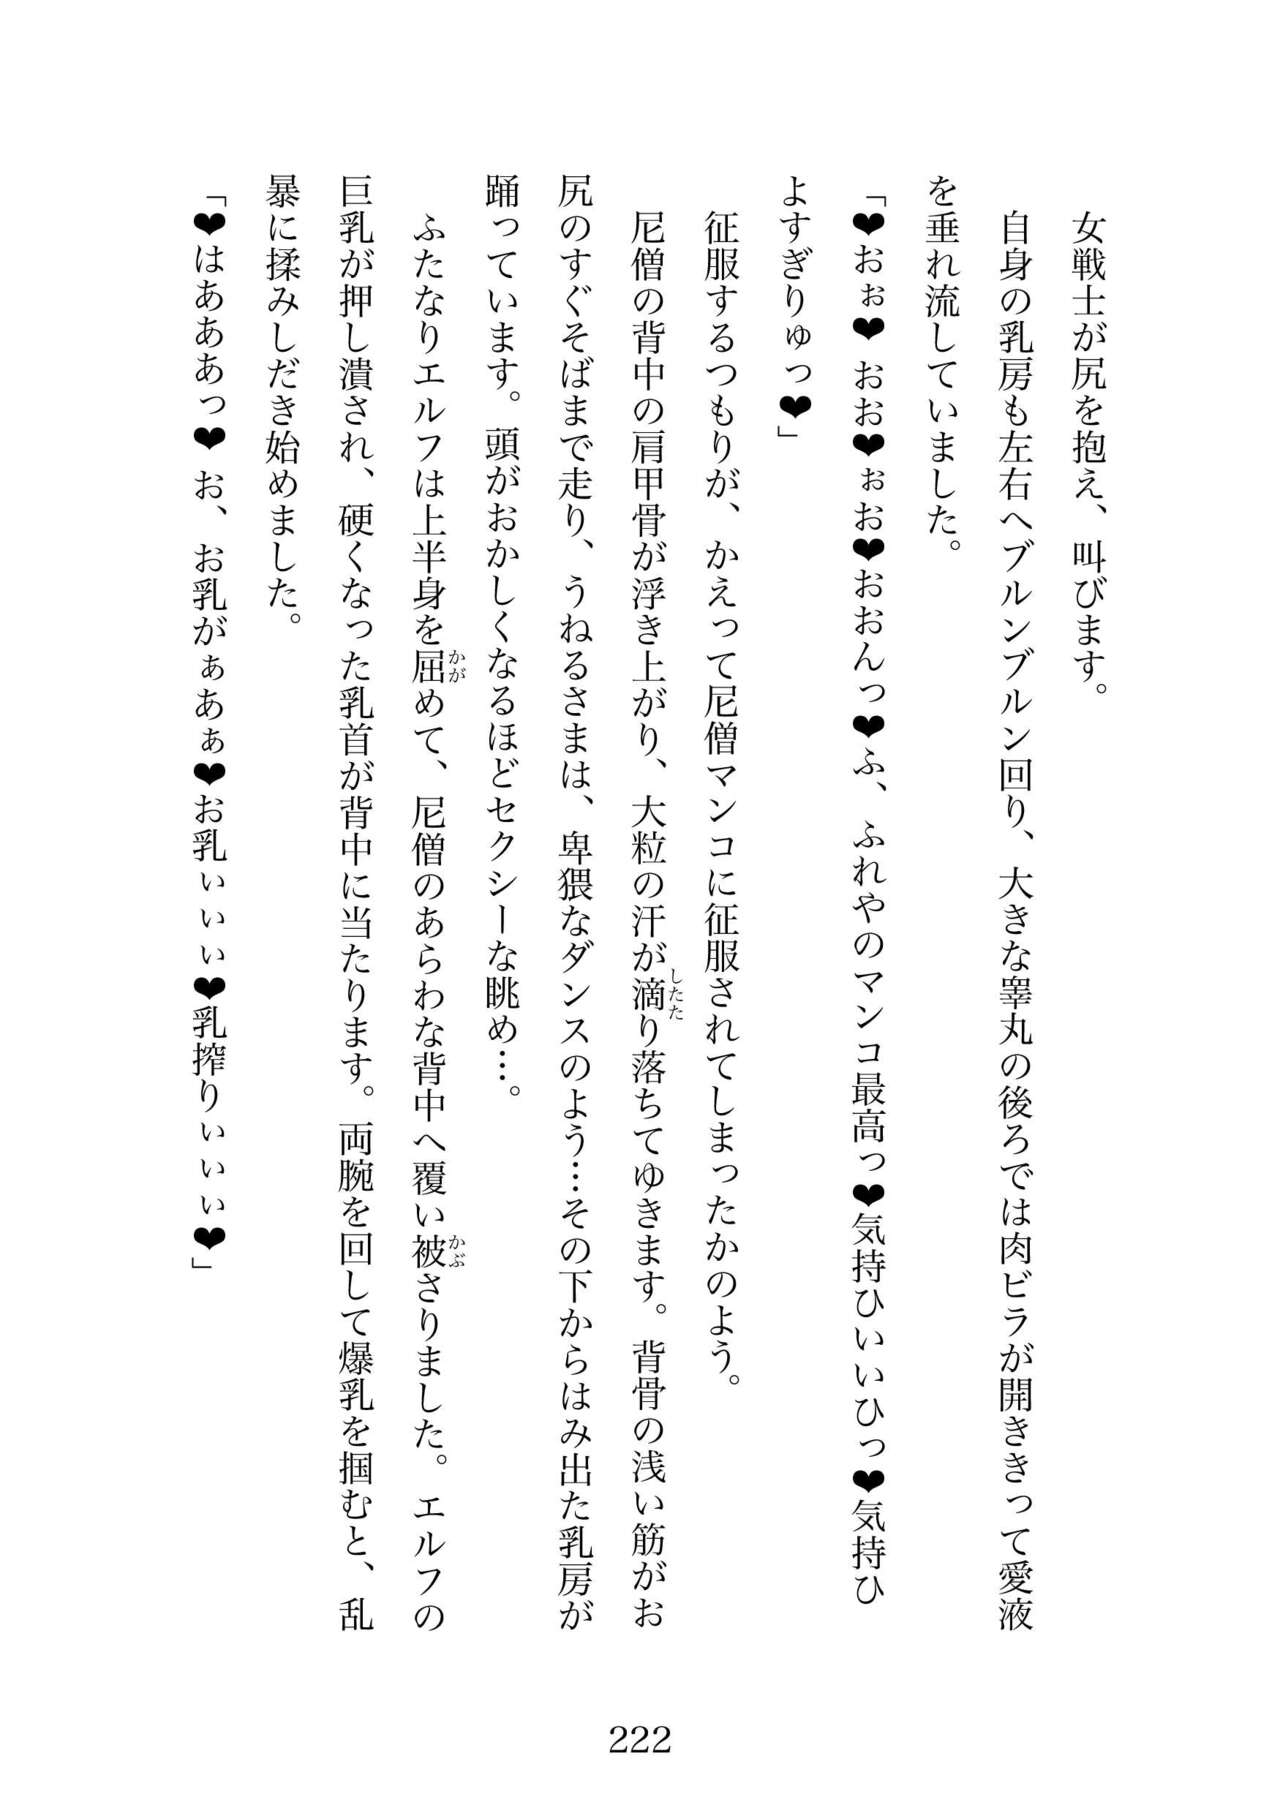 女戦士が尻を抱え、叫びます。
自身の乳房も左右へブルンブルン回り、大きな睾丸の後ろでは肉ビラが開ききって愛液
を垂れ流していました。
「❤おぉ❤ おお❤ぉお❤おおんっ❤ふ、ふれやのマンコ最高っ❤気持ひいいひっ❤気持ひ
よすぎりゅっ❤」
征服するつもりが、かえって尼僧マンコに征服されてしまったかのよう。
尼僧の背中の肩甲骨が浮き上がり、大粒の汗が滴り落ちてゆきます。背骨の浅い筋がお
尻のすぐそばまで走り、うねるさまは、卑猥なダンスのよう…その下からはみ出た乳房が
踊っています。頭がおかしくなるほどセクシーな眺め…。
ふたなりエルフは上半身を屈めて、尼僧のあらわな背中へ覆い被さりました。エルフの
巨乳が押し潰され、硬くなった乳首が背中に当たります。両腕を回して爆乳を掴むと、乱
暴に揉みしだき始めました。
「❤はあああっ❤ お、お乳がぁあぁ❤お乳ぃぃぃ❤乳搾りぃぃぃ❤」
222